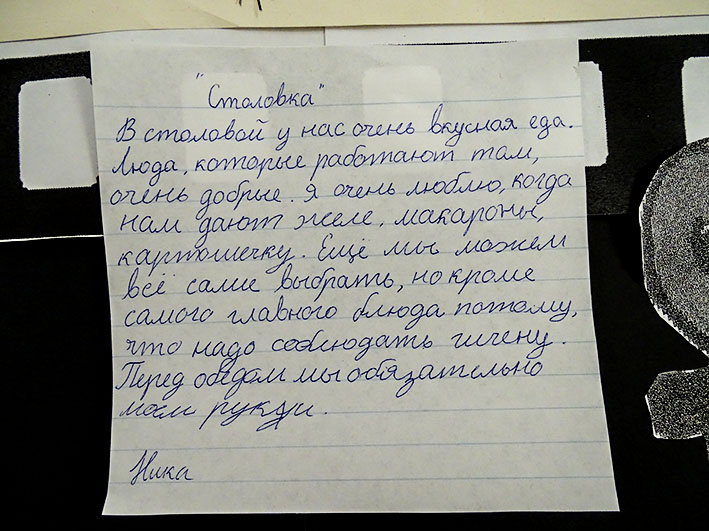 "Столовка"
В столовой у нас очень вкусная еда.
Люда, которые работают там,
очень добрые. Я очень люблю, когда
нам дают желе, макароны,
картошечку. Ещё мы можем
всё сами выбрать, но кроме
самого главного блюда потому,
что надо соблюдать гигену.
Перед обедом мы обязательно
моем руки.
Ника